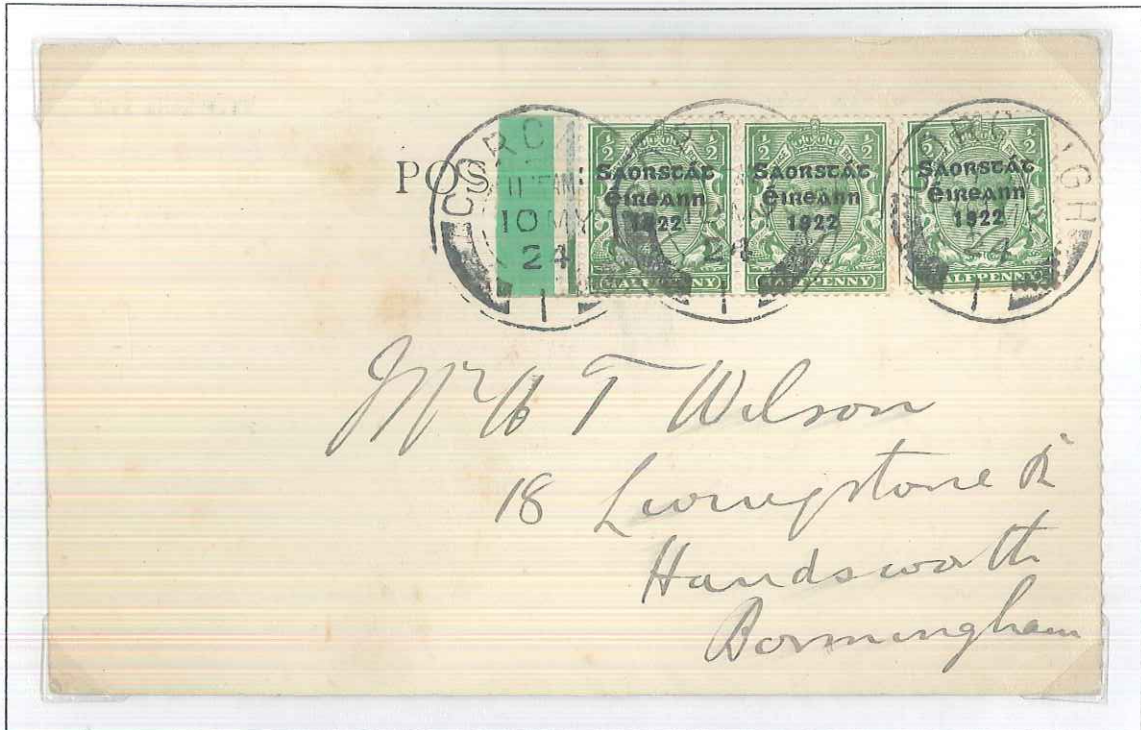 POS
CORCAIGH
11 AM
10 MY
24
1
SAORSTÁT
ÉIREANN
1922
HALFPENNY
SAORSTÁT
ÉIREANN
1922
HALFPENNY
SAORSTÁT
ÉIREANN
1922
HALFPENNY
24
1
24
1
Mr T Wilson
18 Livingstone Rd
Handsworth
Bormingham